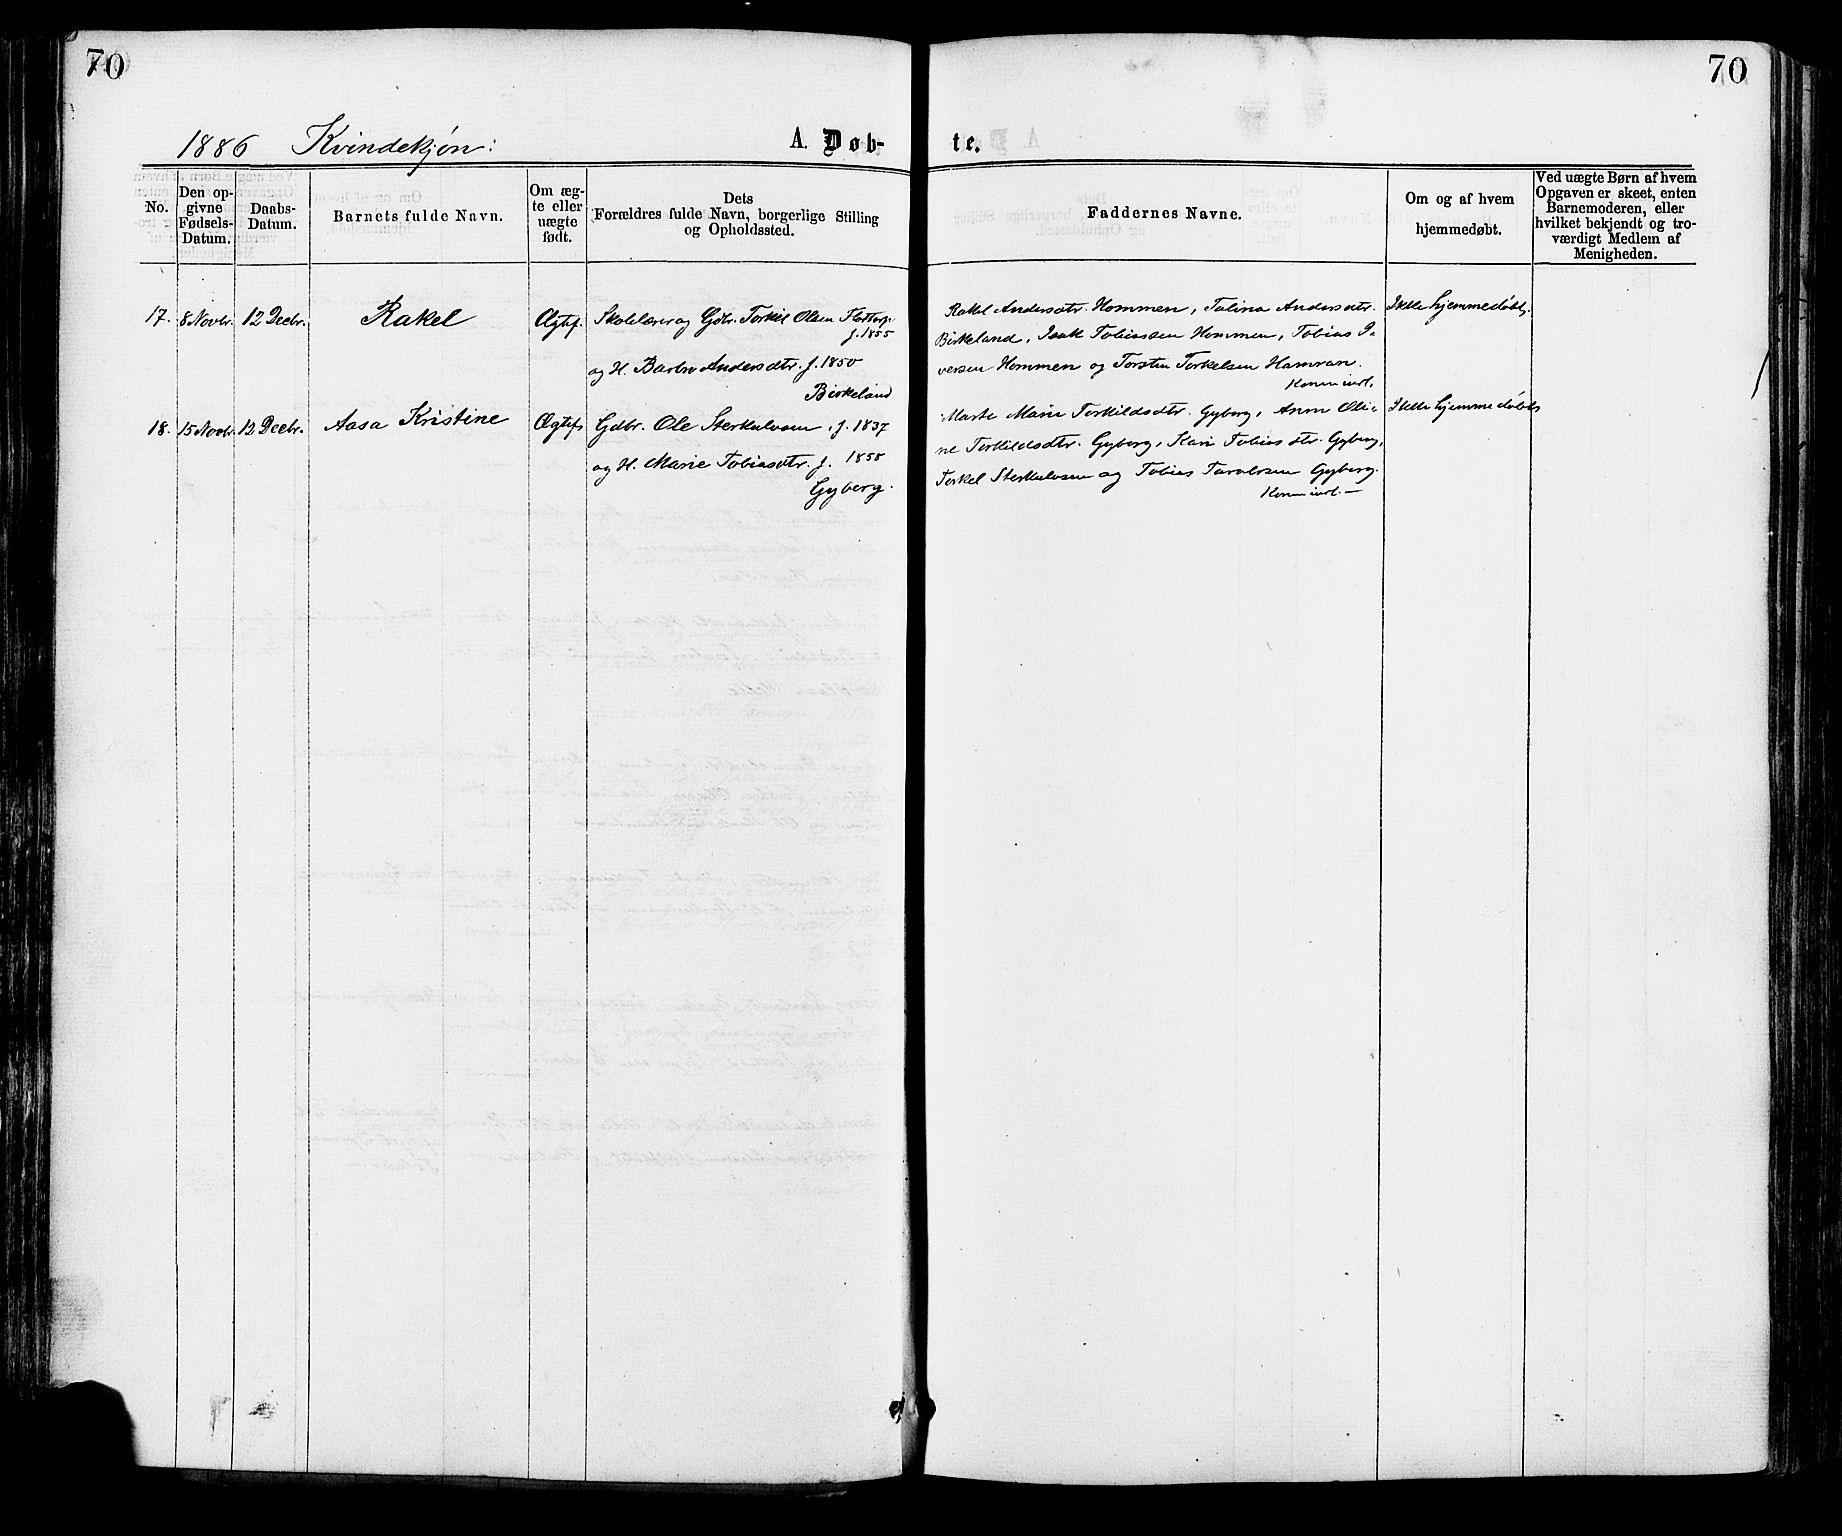 70
70
1886 Kvindekjøn:
A. Døb-
te.
No.
Den op-
givne
Fødsels-
Datum.
Daabs-
Datum.
Barnets fulde Navn.
Om æg-
te eller
uægte
født.
Dets
Forældres fulde Navn, borgerlige Stilling
og Opholdssted.
Faddernes Navne.
Om og af hvem
hjemmedøbt.
Ved uægte Børn af hvem
Opgaven er skeet, enten
Barnemoderen, eller
hvilket bekjendt og tro-
værdigt Medlem af
Menigheden.
17. 8 Novbr. 12 Decbr. Rakel Ægtef. Skolelærer og Gdbr. Torkil Olsen
f. 1855
og H. Barbro Andersdtr. f. 1850
Birkeland
Rakel Andersdtr. Hommen, Talina Andersdtr.
Birkeland, Isak Tobiassen Hommen, Tobias I-
versen Hommen og Torsten Torkelsen Hamran.
Ikke hjemmedøbt.
18. 15 Novbr. 12 Decbr. Aasa Kristine Ægtef. Gdbr. Ole Sterkulvsen, f. 1837
og H. Marie Tobiasdtr. f. 1858
Gyberg.
Marte Marie Torkildsdtr. Gyberg, Anna Oli-
ne Torkildsdtr. Gyberg, Kari Tobiasdtr. Gyberg,
Torkel Sterkulvsen og Tobias Taralssen Gyberg.
Ikke hjemmedøbt